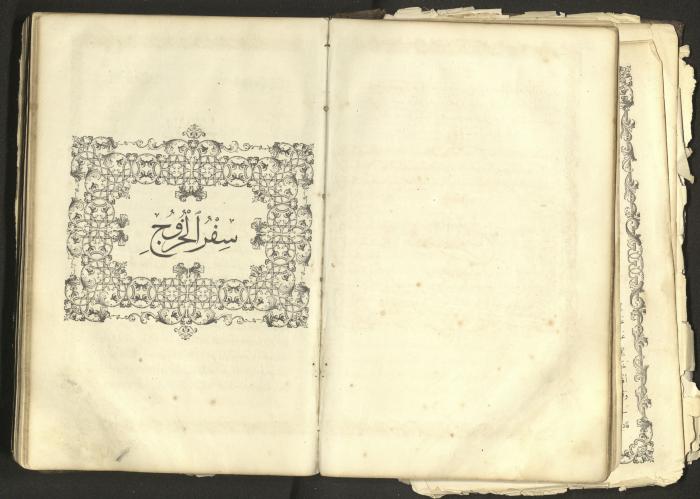 سِفْرُ ٱلْخُرُوجِ